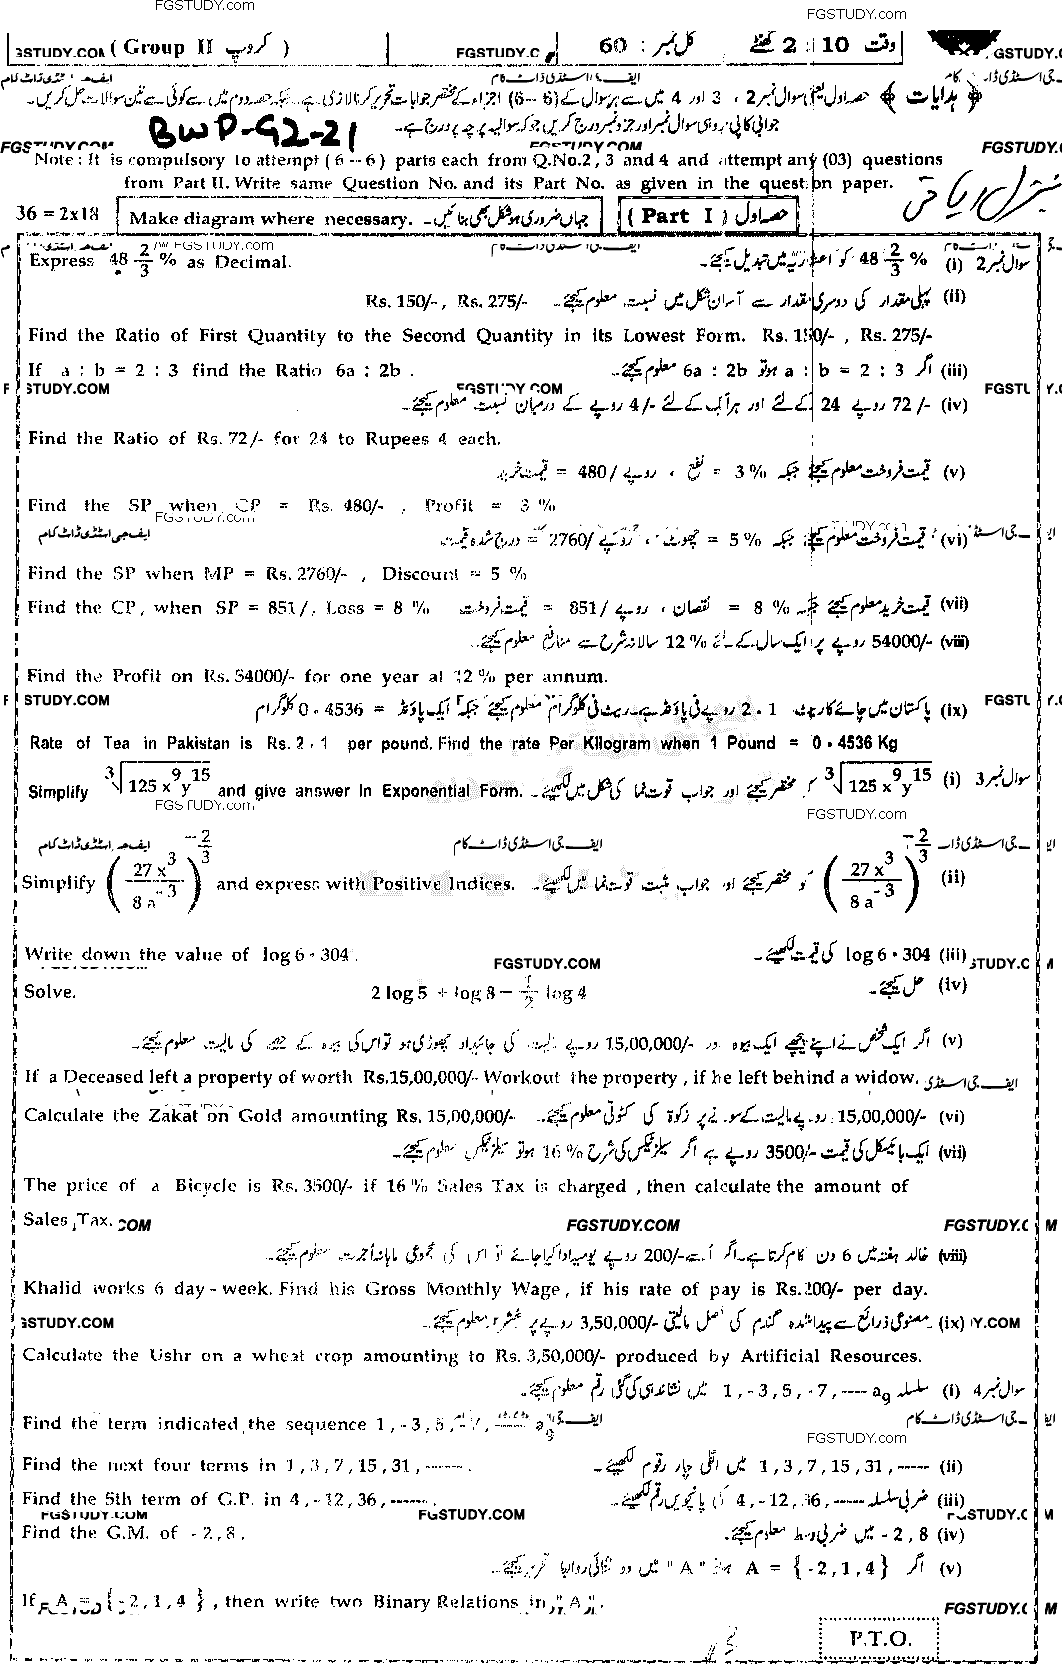 FGSTUDY.com
FGSTUDY.com
GSTUDY.COM ( Group II گروپ ) FGSTUDY.C کل نمبر : 60 وقت 2 : 10 گھنٹے GSTUDY.COM
ایف جی اسٹڈی ڈاٹ کام
﴿ ہدایات ﴾ حصہ اول یعنی سوال نمبر 2 ، 3 اور 4 میں سے ہر سوال کے (6–6) اجزاء کے مختصر جوابات تحریر کرنا لازمی ہے۔ جبکہ حصہ دوم میں سے کوئی سے تین سوالات حل کریں۔
جوابی کاپی پر وہی سوال نمبر اور جز نمبر درج کریں جو کہ سوالیہ پرچہ پر درج ہے۔
BWP-G2-21
FGSTUDY.COM FGSTUDY.COM FGSTUDY.COM
Note : It is compulsory to attempt ( 6 -- 6 ) parts each from Q.No.2 , 3 and 4 and attempt any (03) questions
from Part II. Write same Question No. and its Part No. as given in the question paper.
جنرل ریاضی
36 = 2x18 Make diagram where necessary. جہاں ضروری ہو شکل بھی بنائیں۔ ( Part I ) حصہ اول
FGSTUDY.com
Express 48 2/3 % as Decimal. 48 2/3 % کو اعشاریہ میں تبدیل کیجئے۔ (i) سوال نمبر 2
Rs. 150/- , Rs. 275/- پہلی مقدار کی دوسری مقدار سے آسان شکل میں نسبت معلوم کیجئے۔ (ii)
Find the Ratio of First Quantity to the Second Quantity in its Lowest Form. Rs. 150/- , Rs. 275/-
If a : b = 2 : 3 find the Ratio 6a : 2b . اگر a : b = 2 : 3 ہو تو 6a : 2b معلوم کیجئے۔ (iii)
FGSTUDY.COM FGSTUDY.COM FGSTUDY.COM
72 /- روپے 24 کے لئے اور ہر ایک کے لئے 4/- روپے کے درمیان نسبت معلوم کیجئے۔ (iv)
Find the Ratio of Rs. 72/- for 24 to Rupees 4 each.
قیمت فروخت معلوم کیجئے جبکہ 3 % = نفع ، روپے 480/ = قیمت خرید (v)
Find the SP when CP = Rs. 480/- , Profit = 3 %
FGSTUDY.com
ایف جی اسٹڈی ڈاٹ کام
قیمت فروخت معلوم کیجئے جبکہ 5 % = چھوٹ ، روپے 2760/ = درج شدہ قیمت (vi)
Find the SP when MP = Rs. 2760/- , Discount = 5 %
Find the CP, when SP = 851/, Loss = 8 % قیمت خرید معلوم کیجئے جبکہ 8 % = نقصان ، روپے 851/ = قیمت فروخت (vii)
54000/- روپے پر ایک سال کے لئے 12 % سالانہ شرح سے منافع معلوم کیجئے۔ (viii)
Find the Profit on Rs. 54000/- for one year at 12 % per annum.
F STUDY.COM FGSTU Y.COM
پاکستان میں چائے کا ریٹ 2 . 1 روپے فی پاؤنڈ ہے۔ ریٹ فی کلوگرام معلوم کیجئے جبکہ ایک پاؤنڈ = 0 . 4536 کلوگرام (ix)
Rate of Tea in Pakistan is Rs. 2 . 1 per pound. Find the rate Per Kilogram when 1 Pound = 0 . 4536 Kg
Simplify ∛(125 x⁹ y¹⁵) and give answer in Exponential Form. ∛(125 x⁹ y¹⁵) کو مختصر کیجئے اور جواب قوت نما کی شکل میں لکھیئے۔ (i) سوال نمبر 3
FGSTUDY.com FGSTUDY.com
ایف جی اسٹڈی ڈاٹ کام
Simplify (27 x³ / 8 a⁻³)^(-2/3) and express with Positive Indices. (27 x³ / 8 a⁻³)^(-2/3) کو مختصر کیجئے اور جواب مثبت قوت نما میں لکھیئے۔ (ii)
Write down the value of log 6 . 304 . FGSTUDY.COM log 6 . 304 کی قیمت لکھیئے۔ (iii) STUDY.COM
Solve. 2 log 5 + log 8 − 1/2 log 4 حل کیجئے۔ (iv)
اگر ایک شخص نے اپنے پیچھے ایک بیوہ اور 15,00,000/- روپے مالیت کی جائیداد چھوڑی ہو تو اس کی بیوہ کے حصے کی مالیت معلوم کیجئے۔ (v)
If a Deceased left a property of worth Rs.15,00,000/- Workout the property , if he left behind a widow. ایف جی اسٹڈی
Calculate the Zakat on Gold amounting Rs. 15,00,000/- 15,00,000/- روپے مالیت کے سونے پر زکوٰۃ کی کٹوتی معلوم کیجئے۔ (vi)
ایک بائیسکل کی قیمت 3500/- روپے ہے اگر سیلز ٹیکس کی شرح 16 % ہو تو سیلز ٹیکس معلوم کیجئے۔ (vii)
The price of a Bicycle is Rs. 3500/- if 16 % Sales Tax is charged , then calculate the amount of
Sales Tax. COM FGSTUDY.COM FGSTUDY.COM
خالد ہفتہ میں 6 دن کام کرتا ہے۔ اگر اُسے 200/- روپے یومیہ ادا کیا جائے تو اس کی مجموعی ماہانہ اُجرت معلوم کیجئے۔ (viii)
Khalid works 6 day - week. Find his Gross Monthly Wage , if his rate of pay is Rs.200/- per day.
GSTUDY.COM مصنوعی ذرائع سے پیدا شدہ گندم کی فصل مالیتی 3,50,000/- روپے پر عشر معلوم کیجئے۔ (ix) Y.COM
Calculate the Ushr on a wheat crop amounting to Rs. 3,50,000/- produced by Artificial Resources.
سلسلہ 1 , -3 , 5 , -7 , ---- a₉ میں نشاندہی کی گئی رقم معلوم کیجئے۔ (i) سوال نمبر 4
Find the term indicated the sequence 1 , -3 , 5 , -7 , ------ a₉ ایف جی اسٹڈی ڈاٹ کام
FGSTUDY.com
Find the next four terms in 1 , 3 , 7 , 15 , 31 , ------- . 1 , 3 , 7 , 15 , 31 , ----- میں اگلی چار رقوم لکھیئے۔ (ii)
Find the 5th term of G.P. in 4 , -12 , 36 , ------ . ضربی سلسلہ 4 , -12 , 36 , ----- کی پانچویں رقم لکھیئے۔ (iii)
FGSTUDY.COM FGSTUDY.COM FGSTUDY.COM
Find the G.M. of - 2 , 8 . - 2 , 8 میں ضربی وسط معلوم کیجئے۔ (iv)
اگر A = { -2 , 1 , 4 } ہو تو " A " میں دو ثنائی روابط تحریر کیجئے۔ (v)
If A = { -2 , 1 , 4 } , then write two Binary Relations in " A ".
FGSTUDY.COM
P.T.O.